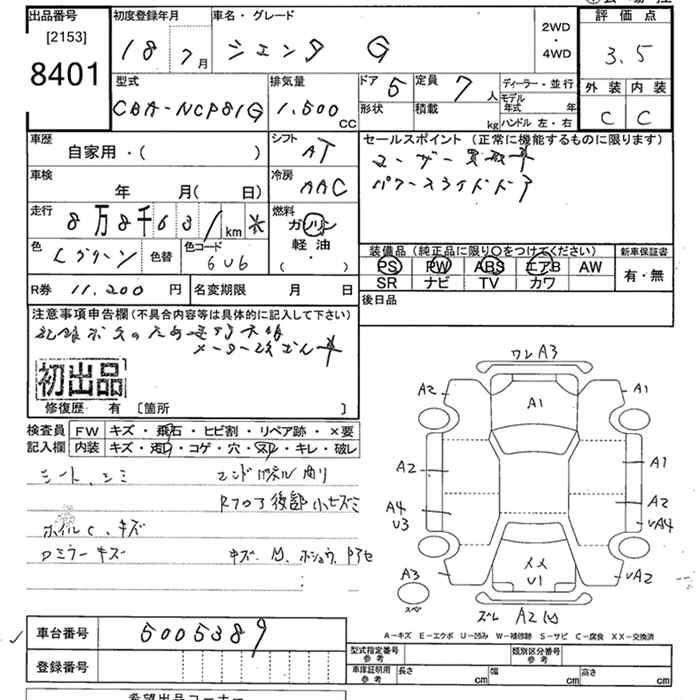 出品番号
[2153]
8401
初度登録年月
18 7月
車名・グレード
シエンタ G
2WD
・
4WD
評価点
3.5
外装 内装
C C
型式
CBA-NCP81G
排気量
1,500
CC
ドア 5
定員 7人
形状
積載 kg
ディーラー・並行
モデル年式 年
ハンドル 左・右
車歴
自家用・( )
シフト
AT
セールスポイント(正常に機能するものに限ります)
ユーザー買取車
パワースライドドア
車検
年 月( 日)
冷房
AAC
走行
8万8千631km
燃料
ガソリン
軽油
( ・ )
色
Lグリーン
色替
色コード
6U6
装備品(純正品に限り○をつけてください)
PS PW ABS エアB AW
SR ナビ TV カワ
新車保証書
有・無
R券 11,200 円
名変期限 月 日
後日品
注意事項申告欄(不具合内容等は具体的に記入して下さい)
初出品
修復歴 有 [箇所 ]
検査員
記入欄
FW キズ・飛石・ヒビ割・リペア跡・×要
内装 キズ・汚レ・コゲ・穴・スレ・キレ・破レ
シート、シミ
エンドパネル曲リ
Rフロア後部小ヒズミ
ホイルC、キズ
ワミラーキズ
ワレ A3
A2
A1
A1
A2
A1
A4
U3
A2
UA4
XX
U1
A3
スペア
UA2
ズレ A2
A-キズ E-エクボ U-凹み W-補修跡 S-サビ C-腐食 XX-交換済
車台番号
5005389
登録番号
型式指定番号
参考
類別区分番号
参考
車庫証明用
参考
長さ cm 幅 cm 高さ cm
希望出品コーナー